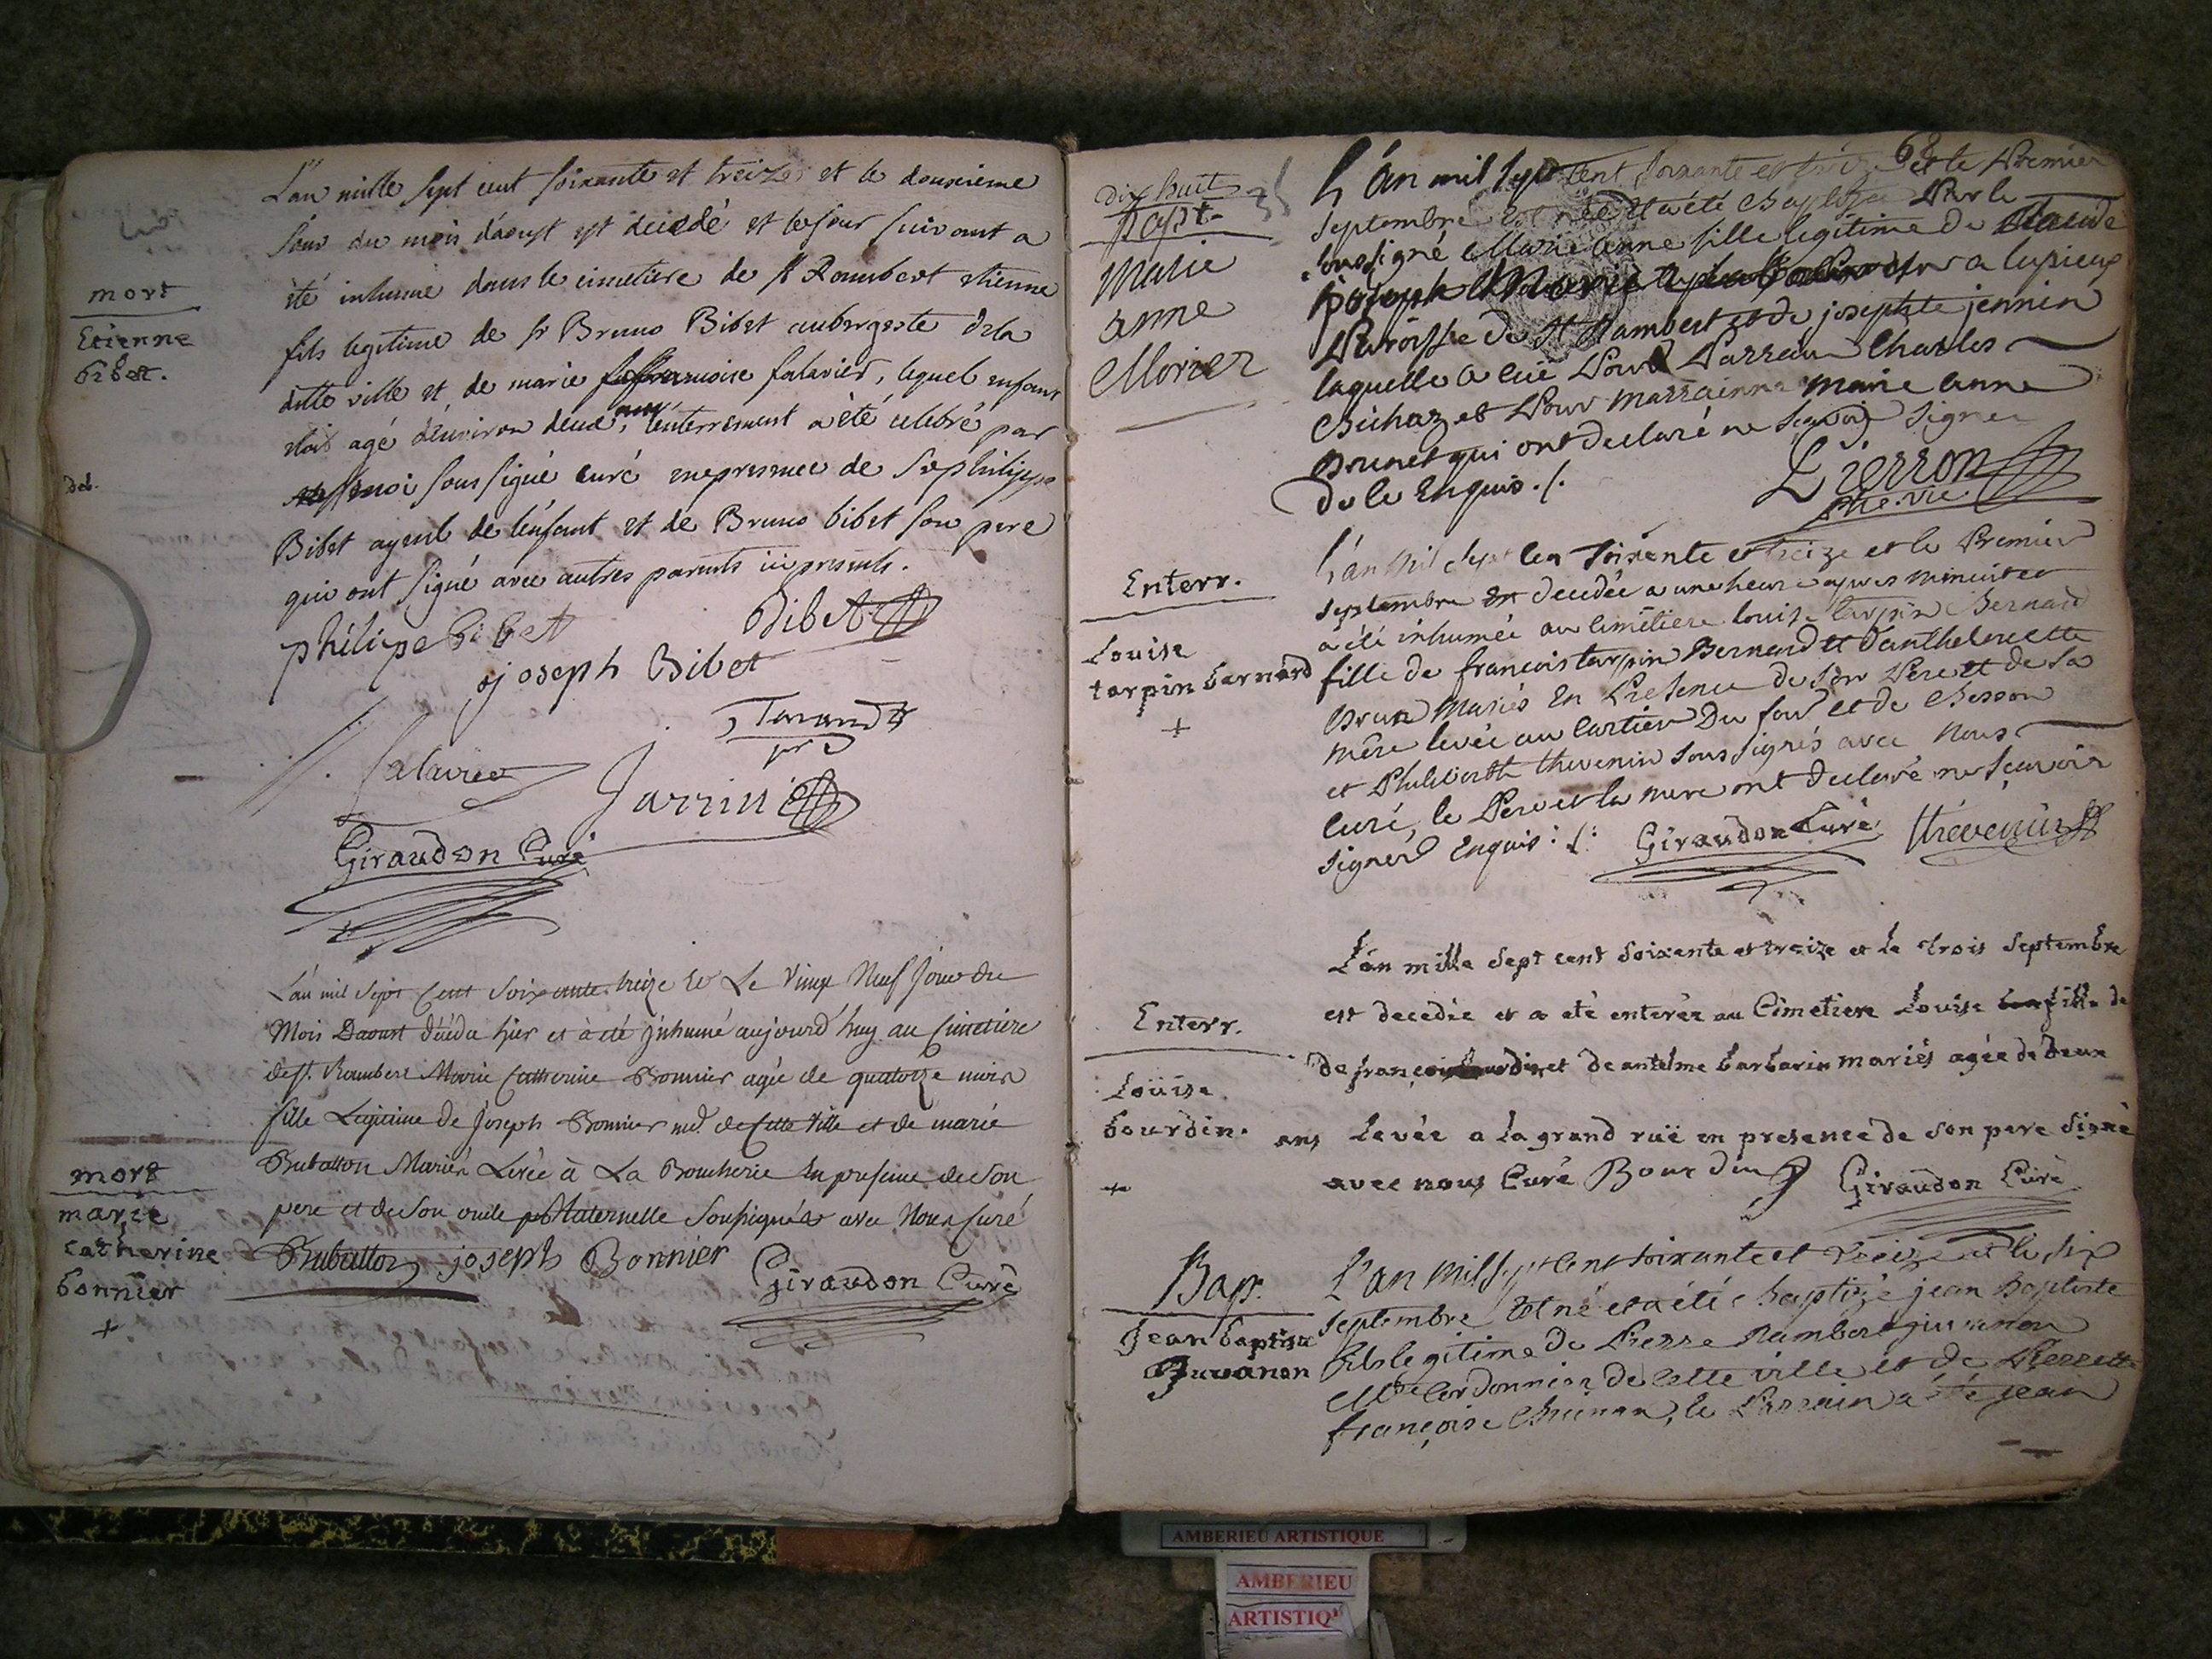 L'an mille sept cent soixante et treize et le douzieme
jour du mois d'aoust est decedé et le jour suivant a
été inhumé dans le cimetiere de st Rambert etienne
fils legitime de sr Bruno Bibet aubergiste dela
ditte ville et de marie françoise salavier, lequel enfant
etoit agé d'environ deux ans l'enterrement a été celebré par
moi soussigné curé en presence de sr philippe
Bibet ayeul de l'enfant et de Bruno bibet son pere
qui ont signé avec autres parents ici presents.
mort
Etienne
bibet.
Deb.
philipe bibet Bibet
joseph Bibet
Tarand
Salavier Jarrin
Giraudon Curé
L'an mil sept Cent soixante treize et Le Vingt Neuf Jour du
Mois Daoust déceda hier et à été Jnhumé aujourd'huy au Cimetiere
de st. Rambert Marie Catherine Bonnier agée de quatorze mois
fille Legitime de Joseph Bonnier md. de Cette Ville et de marie
Mariés Levée à La Boucherie En presence de son
pere et de son oncle Maternelle Soussignés avec Nous Curé
joseph Bonnier Giraudon Curé
mort
marie
catherine
bonnier
+
68
dix huit
bapt.
Marie
anne
Morier
L'an mil sept cent soixante et treize et le Premier
septembre est née et a été Baptisée Par le
soussigné Marie anne fille legitime de Claude
joseph Morier a lupieux
Paroisse de St Rambert et de josephte jennin
laquelle a eue Pour Parrain Charles
Bichaz et Pour marrainne marie anne
Brunet qui ont declaré ne sçavoir signer
de ce Enquis ./.
Pierron
Ptre. vic
Enterr.
Louise
tarpin bernard
+
L'an mil sept cen soixante et treize et le Premier
septembre est decedée a une heure apres minuit et
a été inhumée au cimetiere louise tarpin Bernard
fille de francois tarpin Bernard et d'anthelmette
Brun mariés En Presence de son Pere et de sa
mère levée au cartier Du four et de Besson
et Philibert thevenin soussignés avec Nous
curé, le Pere et la mere ont declaré ne sçavoir
signer Enquis ./. Giraudon Curé thévenin
Enterr.
Loüise
bourdin.
+
L'an mille sept cent soixante et treize et le trois septembre
est decedée et a eté enterée au Cimetiere Louise fille de
de françois bourdin et de antelme barbarin mariés agée de deux
ans Levée a La grand ruë en presence de son pere signé
avec nous Curé Bourdin Giraudon Curé
Bapt.
Jean baptiste
Juvanon
L'an mil sept cent soixante et treize et le six
septembre Est né et a été baptizé jean Baptiste
fils legitime de Pierre Rambert juvanon
Mtre Cordonnier de cette ville et de Pierrette
françoise, le Parrain a été jean
AMBERIEU ARTISTIQUE
AMBERIEU
ARTISTIQ